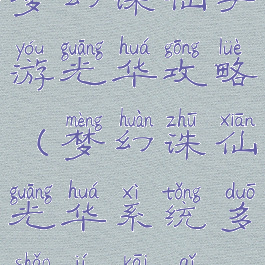 梦幻诛仙手
yóu guāng huá gōng lüè
游光华攻略
mèng huàn zhū xiān
（梦幻诛仙
guāng huá xì tǒng duō
光华系统多
shǎo jí kāi qǐ